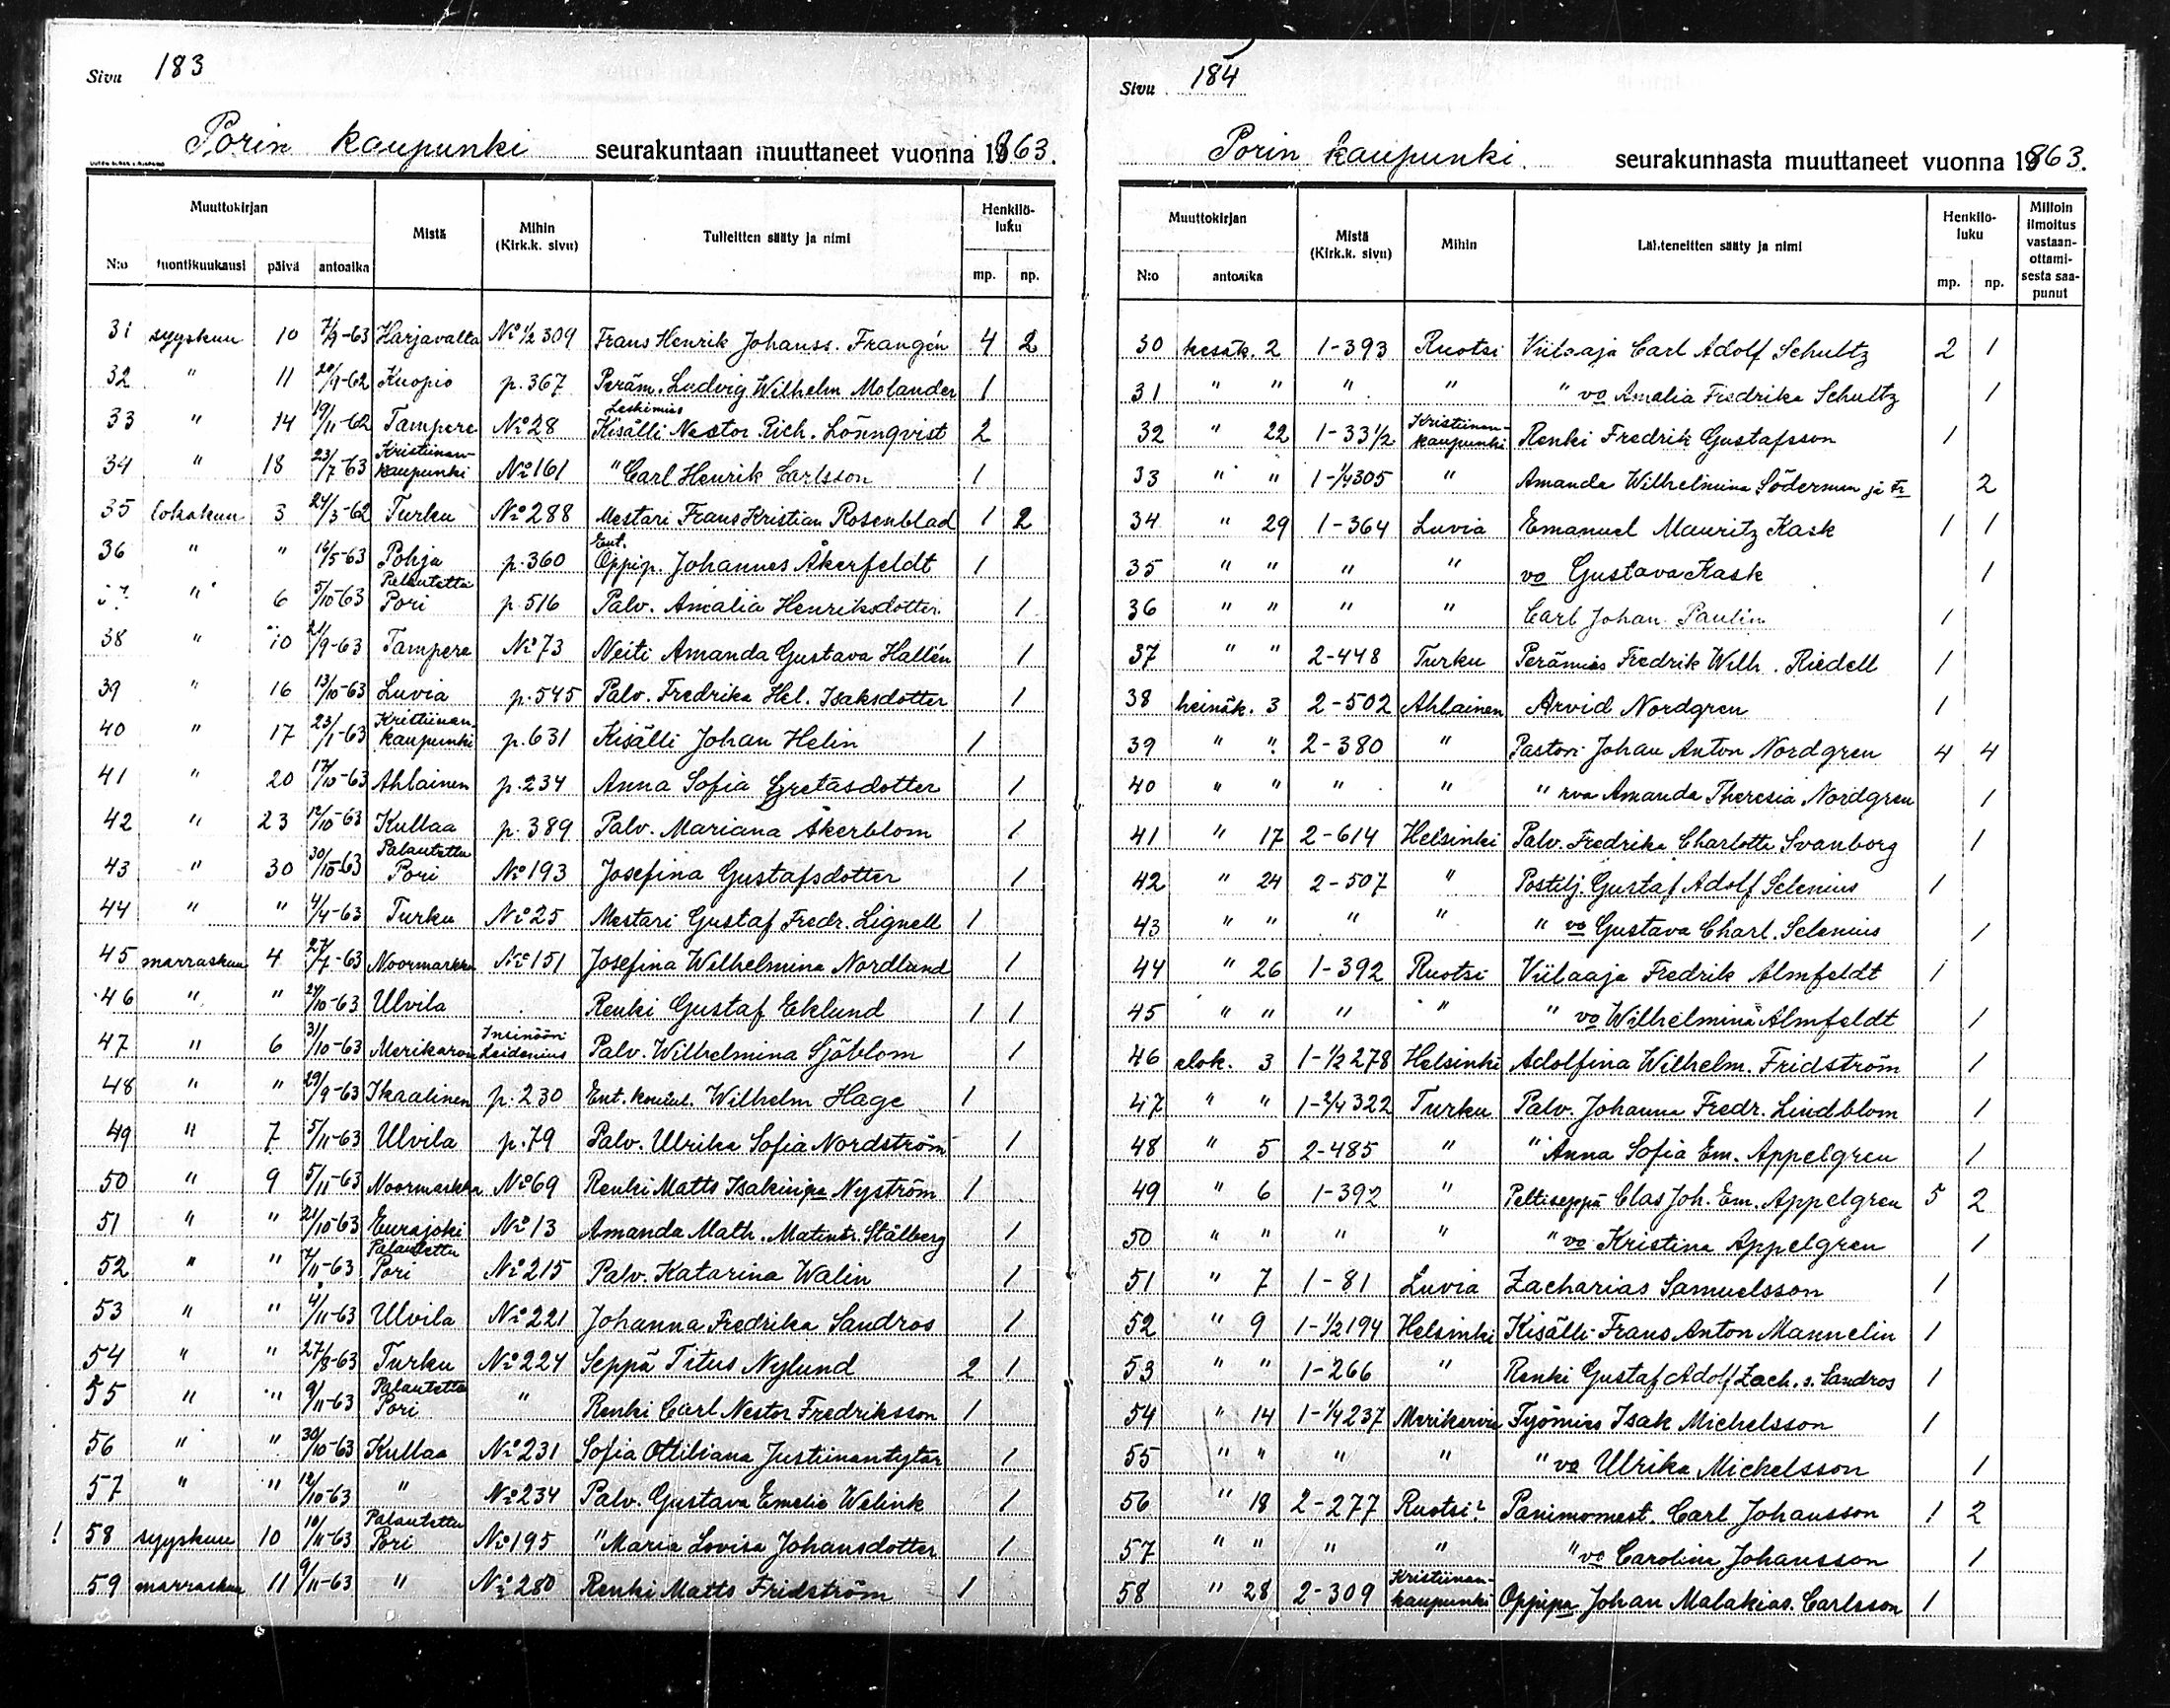 Sivu 183
Porin kaupunki seurakuntaan muuttaneet vuonna 1863.
Muuttokirjan Mistä Mihin (Kirk.k. sivu) Tulleitten sääty ja nimi Henkilö-luku
N:o tuontikuukausi päivä antoaika mp. np.
31 syyskuu 10 7/9-63 Harjavalta No 1/2 309 Frans Henrik Johanss. Frangén 4 2
32 " 11 20/9-62 Kuopio p.367 Peräm. Ludvig Wilhelm Molander 1
33 " 14 19/11-62 Tampere No 28 Leskimies Kisälli Nestor Rich. Lönnqvist 2
34 " 18 23/7-63 Kristiinan-kaupunki No 161 " Carl Henrik Carlsson 1
35 lokakuu 3 24/3-62 Turku No 288 Mestari Frans Kristian Rosenblad 1 2
36 " " 16/5-63 Pohja p.360 Ent. Oppip. Johannes Åkerfeldt 1
37 " 6 5/10-63 Palautettu Pori p.516 Palv. Amalia Henriksdotter 1
38 " 10 21/9-63 Tampere No 73 Neiti Amanda Gustava Hallén 1
39 " 16 13/10-63 Luvia p.545 Palv. Fredrika Hel. Isaksdotter 1
40 " 17 23/1-63 Kristiinan-kaupunki p.631 Kisälli Johan Helin 1
41 " 20 17/10-63 Ahlainen p.234 Anna Sofia Gretasdotter 1
42 " 23 12/10-63 Kullaa p.389 Palv. Mariana Åkerblom 1
43 " 30 30/10-63 Palautettu Pori No 193 Josefina Gustafsdotter 1
44 " " 4/4-63 Turku No 25 Mestari Gustaf Fredr. Lignell 1
45 marraskuu 4 27/7-63 Noormarkku No 151 Josefina Wilhelmina Nordlund 1
46 " " 24/10-63 Ulvila Renki Gustaf Eklund 1 1
47 " 6 31/10-63 Merikarvia Insinööri Leidenius Palv. Wilhelmina Sjöblom 1
48 " " 29/9-63 Ikaalinen p.230 Ent. Wilhelm Hage 1
49 " 7 5/11-63 Ulvila p.79 Palv. Ulrika Sofia Nordström 1
50 " 9 5/11-63 Noormarkku No 69 Renki Matts Isakinpa Nyström 1
51 " " 21/10-63 Eurajoki No 13 Amanda Math. Matintr. Stålberg 1
52 " " 7/11-63 Palautettu Pori No 215 Palv. Katarina Walin 1
53 " " 4/11-63 Ulvila No 221 Johanna Fredrika Sandros 1
54 " " 27/8-63 Turku No 224 Seppä Titus Nylund 2 1
55 " " 9/11-63 Palautettu Pori " Renki Carl Nestor Fredriksson 1
56 " " 30/10-63 Kullaa No 231 Sofia Ottiliana Justiinantytär 1
57 " " 12/10-63 " No 234 Palv. Gustava Emelie Welink 1
! 58 syyskuu 10 10/11-63 Palautettu Pori No 195 " Maria Lovisa Johansdotter 1
59 marraskuu 11 9/11-63 " No 280 Renki Matts Fridström 1
Sivu 184
Porin kaupunki. seurakunnasta muuttaneet vuonna 1863.
Muuttokirjan Mistä (Kirk.k. sivu) Mihin Lähteneitten sääty ja nimi Henkilö-luku Milloin ilmoitus vastaan-ottami-sesta saa-punut
N:o antoaika mp. np.
30 kesäk. 2 1-393 Ruotsi Viilaaja Carl Adolf Schultz 2 1
31 " " " " " vo Amalia Fredrika Schultz 1
32 " 22 1-33 1/2 Kristiinan-kaupunki Renki Fredrik Gustafsson 1
33 " " 1-1/4 305 " Amanda Wilhelmina Söderman ja tr 2
34 " 29 1-364 Luvia Emanuel Mauritz Kask 1 1
35 " " " " vo Gustava Kask 1
36 " " " " Carl Johan Paulin 1
37 " " 2-448 Turku Perämies Fredrik Wilh. Riedell 1
38 heinäk. 3 2-502 Ahlainen Arvid Nordgren 1
39 " " 2-380 " Pastori Johan Anton Nordgren 4 4
40 " " " " " rva Amanda Theresia Nordgren 1
41 " 17 2-614 Helsinki Palv. Fredrika Charlotta Svanborg 1
42 " 24 2-507 " Postilj. Gustaf Adolf Selenius 1
43 " " " " " vo Gustava Charl. Selenius 1
44 " 26 1-392 Ruotsi Viilaaja Fredrik Almfeldt 1
45 " " " " " vo Wilhelmina Almfeldt 1
46 elok. 3 1-1/2 278 Helsinki Adolfina Wilhelm. Fridström 1
47 " " 1-2/4 322 Turku Palv. Johanna Fredr. Lindblom 1
48 " 5 2-485 " " Anna Sofia Em. Appelgren 1
49 " 6 1-392 " Peltiseppä Clas Joh. Em. Appelgren 5 2
50 " " " " " vo Kristina Appelgren 1
51 " 7 1-81 Luvia Zacharias Samuelsson 1
52 " 9 1-1/2 194 Helsinki Kisälli Frans Anton Mannelin 1
53 " " 1-266 " Renki Gustaf Adolf Zach. s. Sandros 1
54 " 14 1-1/4 237 Merikarvia Työmies Isak Michelsson 1
55 " " " " " vo Ulrika Michelsson 1
56 " 18 2-277 Ruotsi? Panimomest. Carl Johansson 1 2
57 " " " " " vo Carolina Johansson 1
58 " 28 2-309 Kristiinan-kaupunki Oppipa Johan Malakias. Carlsson 1